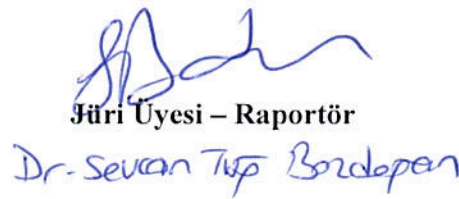 Jüri Üyesi – Raportör
Dr. Sevcan Bozdoğan